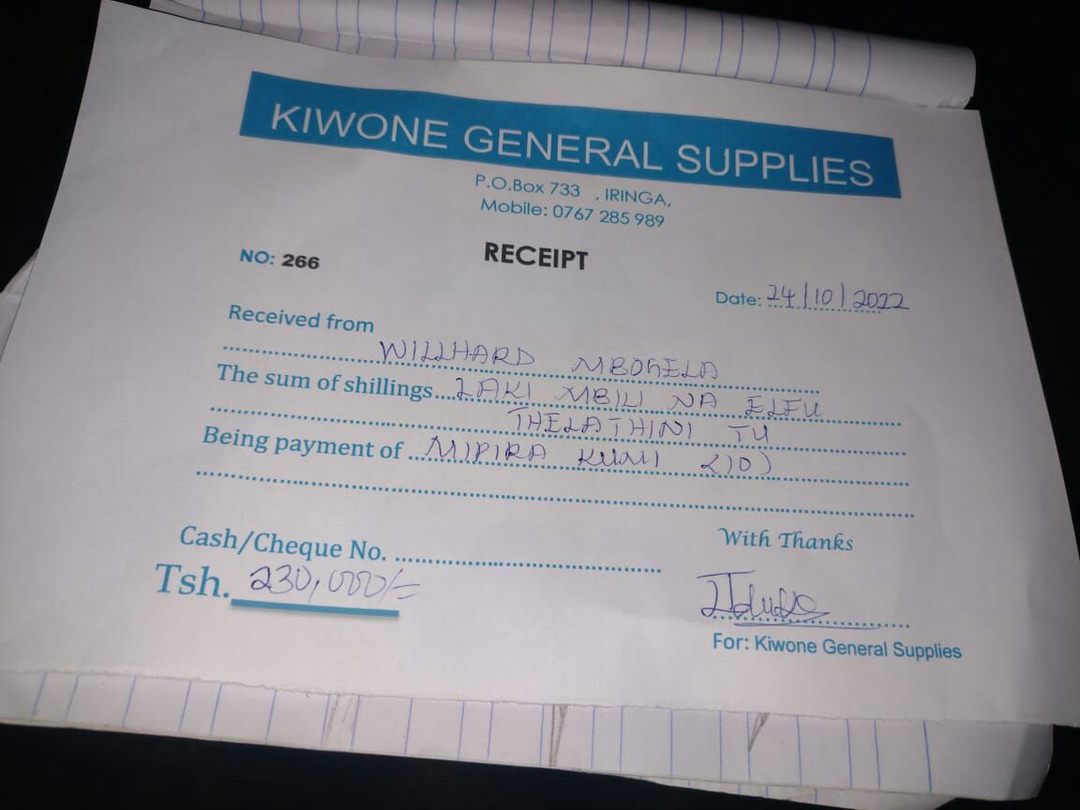 KIWONE GENERAL SUPPLIES
P.O.Box 733 , IRINGA,
Mobile: 0767 285 989
RECEIPT
NO: 266
Date: 24/10/2022
Received from
WILLHARD MBOGELA
The sum of shillings LAKI MBILI NA ELFU
THELATHINI TU
Being payment of MIPIRA KUMI (10)
Cash/Cheque No.
With Thanks
Tsh. 230,000/=
For: Kiwone General Supplies